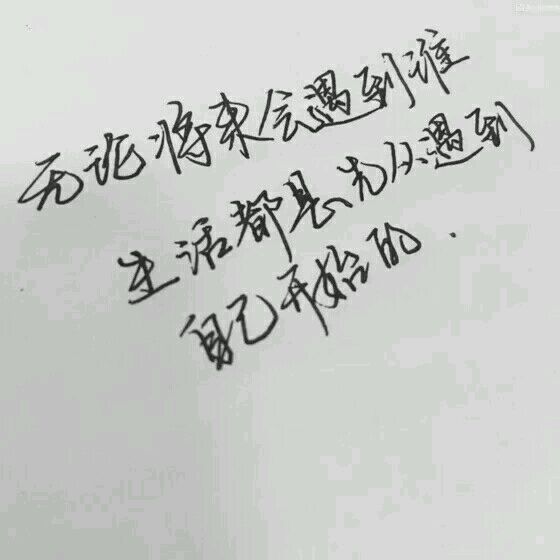 无论将来会遇到谁
生活都是先从遇到
自己开始的.